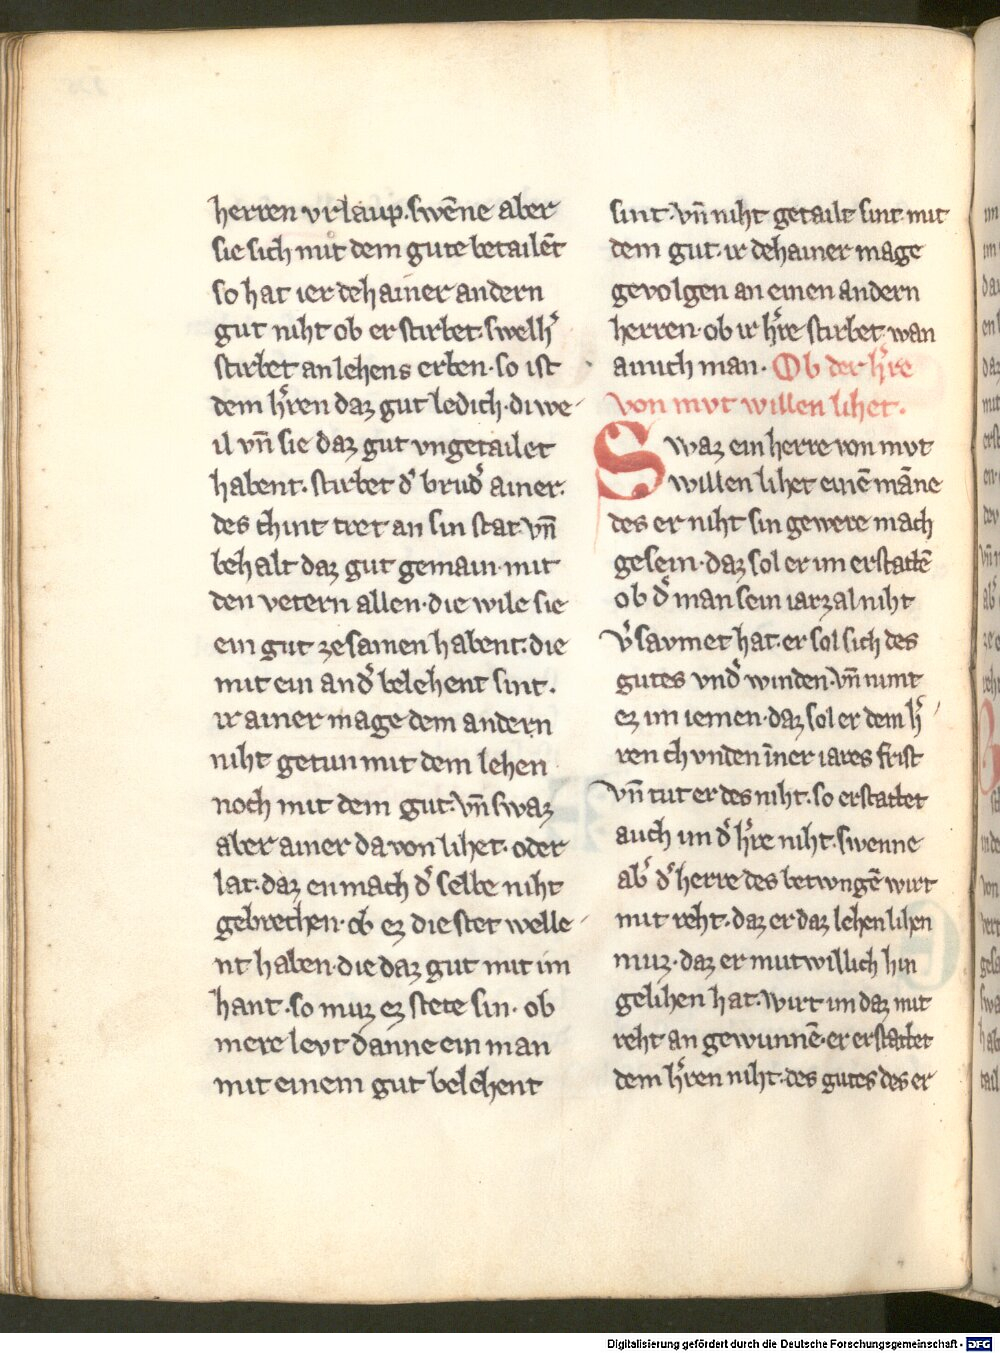 herren vrlaup. swēne aber
sie sich mit dem gute betailēt
so hat ier dehainer andern
gut niht ob er stirbet. swelh͛
stirbet an lehens erben. so ist
dem h͛ren daz gut ledich. di we
il vn̄ sie daz gut vngetailet
habent. stirbet d͛ brud͛ ainer.
des chint tret an sin stat. vn̄
behalt daz gut gemain. mit
den vetern allen. die wile sie
ein gut zesamen habent. die
mit ein and͛ belehent sint.
ir ainer mage dem andern
niht getun mit dem lehen
noch mit dem gut. vn̄ swaz
aber ainer da von lihet. oder
lat. daz en mach d͛ selbe niht
gebrechen. ob ez die stet welle
nt haben. die daz gut mit im
hant. so muz ez stete sin. ob
mere levt danne ein man
mit einem gut belehent
sint. vn̄ niht getailt sint mit
dem gut. ir dehainer mage
gevolgen an einen andern
herren. ob ir h͛re stirbet. wan
ain ich man. Ob der h͛re
von mvt willen lihet.
Swaz ein herre von mvt
willen lihet einē māne
des er niht sin gewere mach
gesein. daz sol er im erstattē
ob d͛ man sein iarzal niht
v͛savmet hat. er sol sich des
gutes vnd͛ winden. vn̄ nimt
ez im iemen. daz sol er dem h͛
ren chvnden īner iares frist
vn̄ tut er des niht. so erstattet
auch im d͛ h͛re niht. swenne
ab͛ d͛ herre des betwngē wirt
mit reht. daz er daz lehen lihen
muz. daz er mutwillich hin
gelihen hat. wirt im daz mit
reht an gewunnē. er erstattet
dem h͛ren niht. des gutes des er
Digitalisierung gefördert durch die Deutsche Forschungsgemeinschaft - DFG